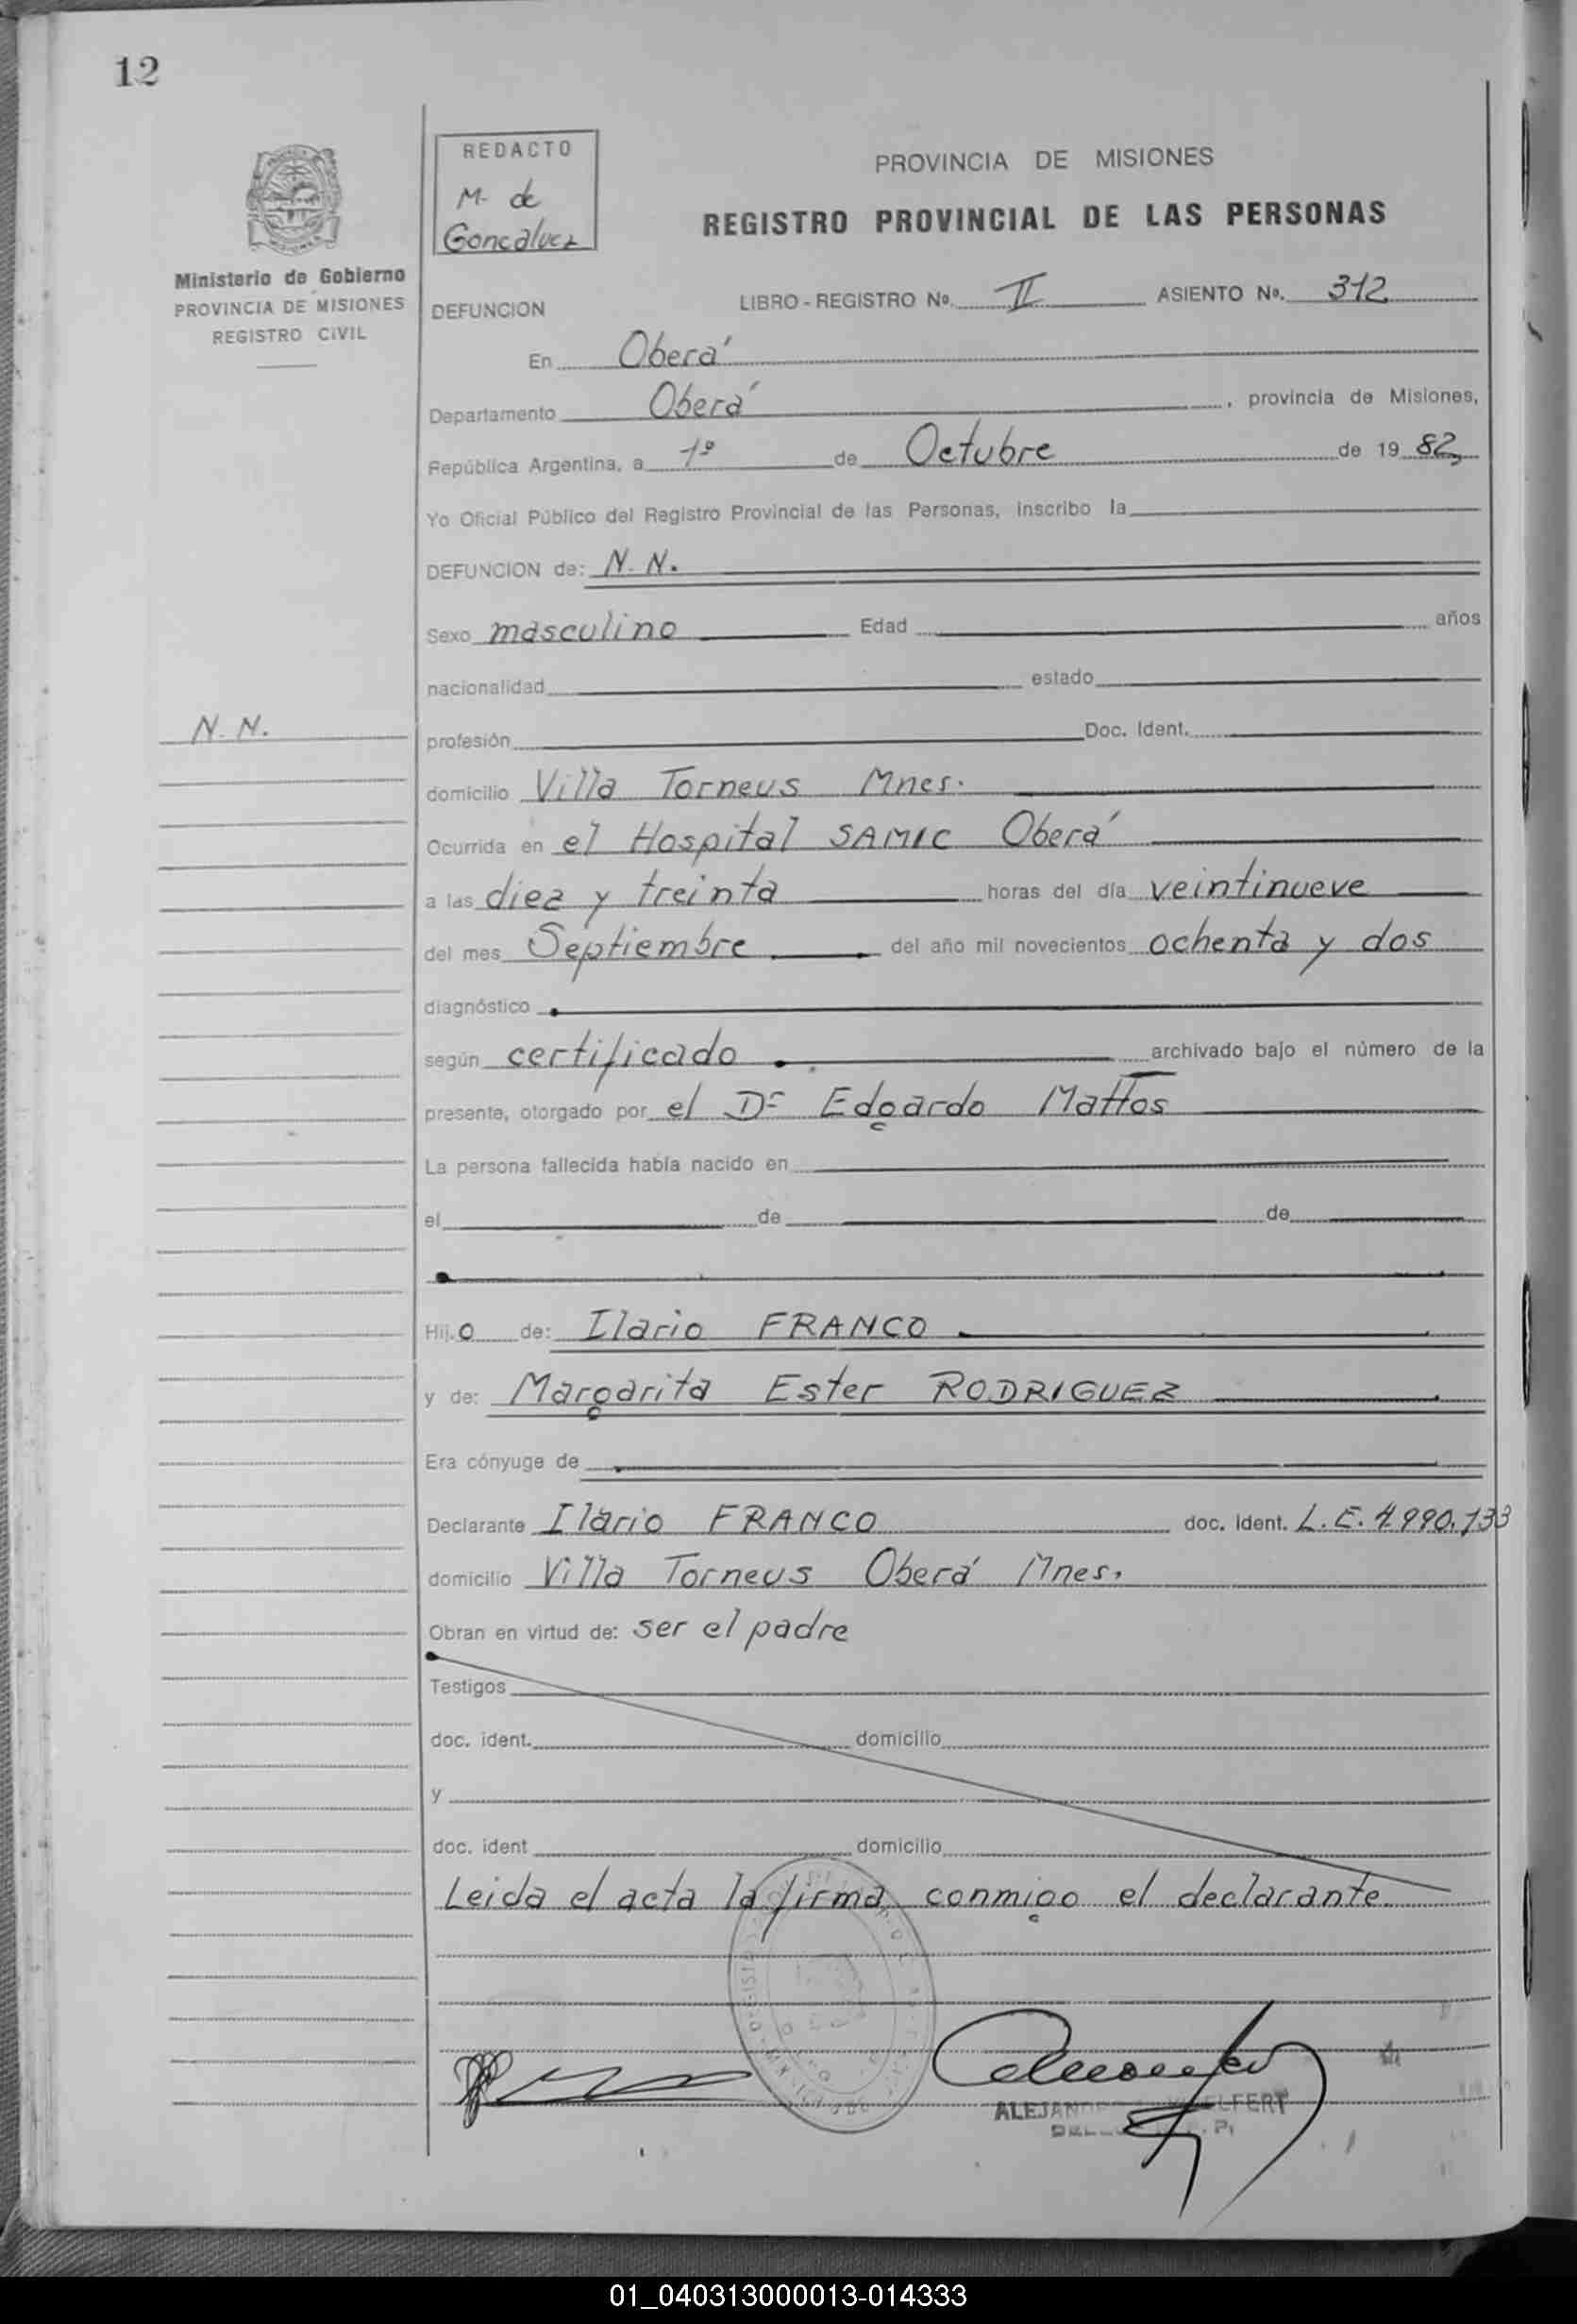 12
REDACTO
M. de
Goncalvez
Ministerio de Gobierno
PROVINCIA DE MISIONES
REGISTRO CIVIL
PROVINCIA DE MISIONES
REGISTRO PROVINCIAL DE LAS PERSONAS
DEFUNCION LIBRO - REGISTRO No. II ASIENTO No. 312
En Oberá
Departamento Oberá, provincia de Misiones,
República Argentina, a 1º de Octubre de 1982,
Yo Oficial Público del Registro Provincial de las Personas, inscribo la
DEFUNCION de: N. N.
Sexo masculino Edad años
nacionalidad estado
N. N.
profesión Doc. Ident.
domicilio Villa Torneus Mnes.
Ocurrida en el Hospital SAMIC Oberá
a las diez y treinta horas del día veintinueve
del mes Septiembre del año mil novecientos ochenta y dos
diagnóstico
según certificado archivado bajo el número de la
presente, otorgado por el Dr Edgardo Mattos
La persona fallecida había nacido en
el de de
Hijo de: Ilario FRANCO
y de: Margarita Ester RODRIGUEZ
Era cónyuge de
Declarante Ilario FRANCO doc. ident. L.E. 4.990.133
domicilio Villa Torneus Oberá Mnes.
Obran en virtud de: ser el padre
Testigos
doc. ident. domicilio
y
doc. ident domicilio
Leida el acta la firma conmigo el declarante.
01_040313000013-014333